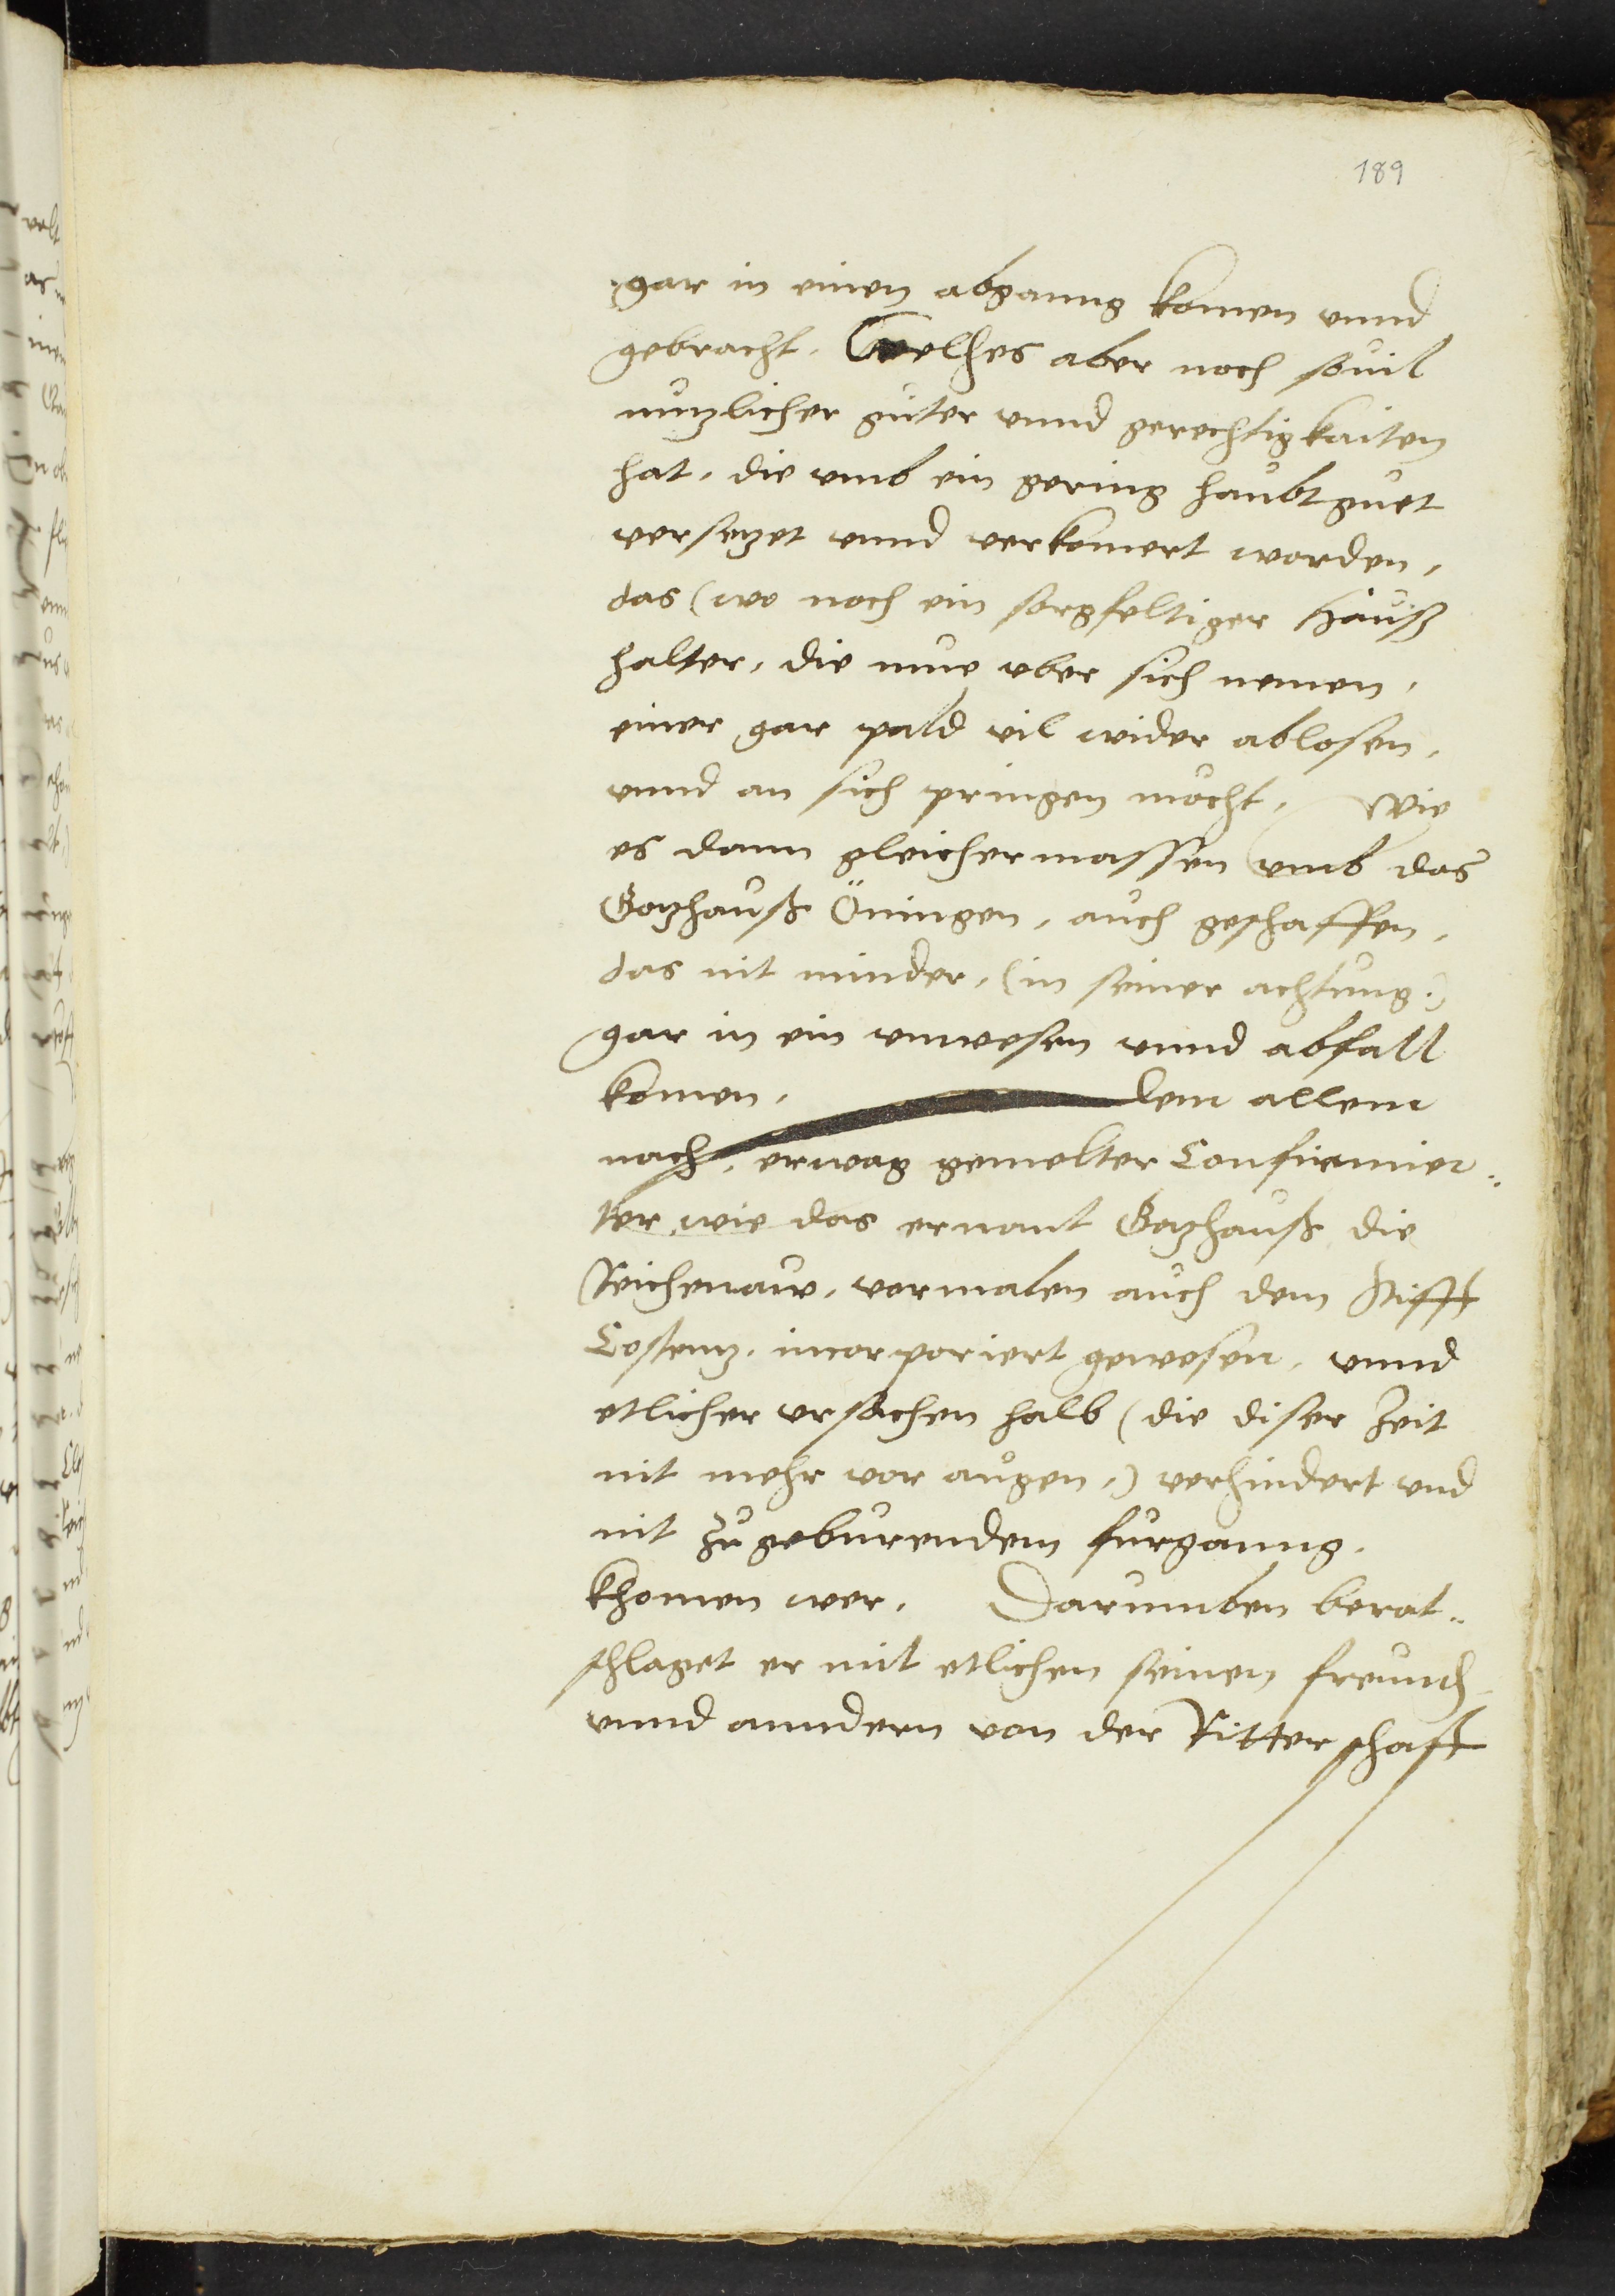 189
gar in einen abganng komen vnnd
gebracht. Welhes aber noch souil
nuzlicher güter vnnd gerechtigkaiten
hat, die vmb ein gering haubtguet
versezet vnnd verkomert worden,
das (wo noch ein sorgfeltiger Hauß
halter, die mue vber sich nemen,
einer gar pald vil wider ablosen,
vnnd an sich pringen mocht, Wie
es dann gleichermassen vmb das
Gozhauß Öningen, auch geschaffen,
das nit minder, (in seiner achtung:)
gar in ein vnwesen vnnd abfall
komen, dem allem
nach, erwag gemelter Confirmier„
ter, wie das ernant Gozhauß die
Reichenaw, vormalen auch dem Stifft
Costenz, incorporiert gewesen, vnnd
etlicher vrsachen halb (die diser Zeit
nit mehr vor augen,) verhindert vnd
nit zu geburendem furganng,
khomen wer, Darumben berat„
schlaget er mit etlichen seinen freund
vnnd anndern von der Ritterschafft